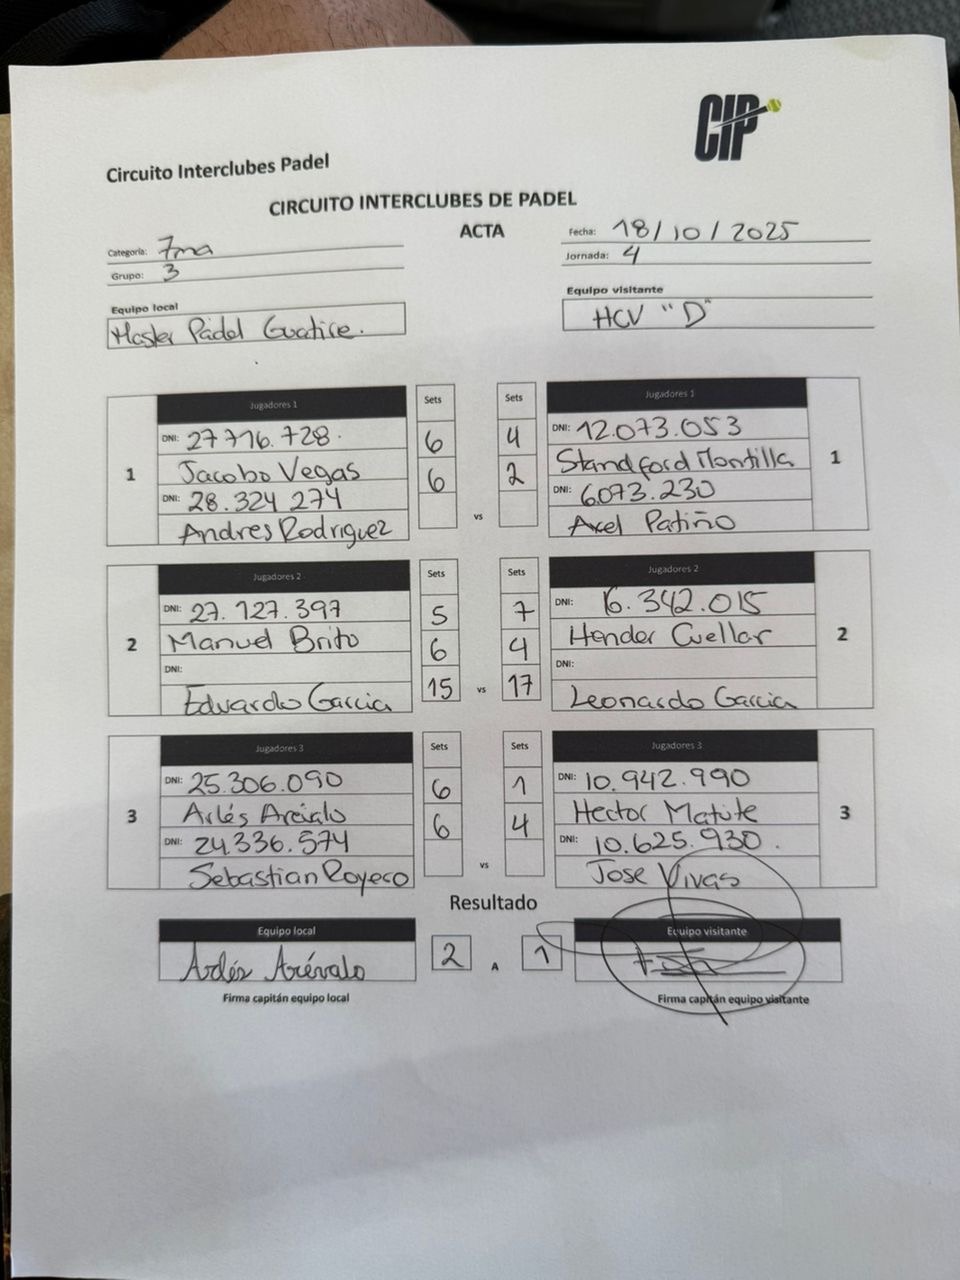 CIP
Circuito Interclubes Padel
CIRCUITO INTERCLUBES DE PADEL
ACTA
Categoría: 7ma
Grupo: 3
Fecha: 18/10/2025
Jornada: 4
Equipo local
Master Pádel Guatire.
Equipo visitante
HCV "D"
Jugadores 1 Sets Sets Jugadores 1
1 DNI: 27 716.728. 6 4 DNI: 12.073.053 1
Jacobo Vegas 6 2 Standford Montilla
DNI: 28.324 274 vs DNI: 6.073.230
Andres Rodriguez Axel Patiño
Jugadores 2 Sets Sets Jugadores 2
2 DNI: 27.127.397 5 7 DNI: 16.342.015 2
Manuel Brito 6 4 Hender Cuellar
DNI: 15 vs 17 DNI:
Eduardo Garcia Leonardo Garcia
Jugadores 3 Sets Sets Jugadores 3
3 DNI: 25.306.090 6 1 DNI: 10.942.990 3
Arlés Arévalo 6 4 Hector Matute
DNI: 24.336.574 vs DNI: 10.625.930.
Sebastian Royero Jose Vivas
Resultado
Equipo local Equipo visitante
Arlés Arévalo 2 A 1
Firma capitán equipo local Firma capitán equipo visitante